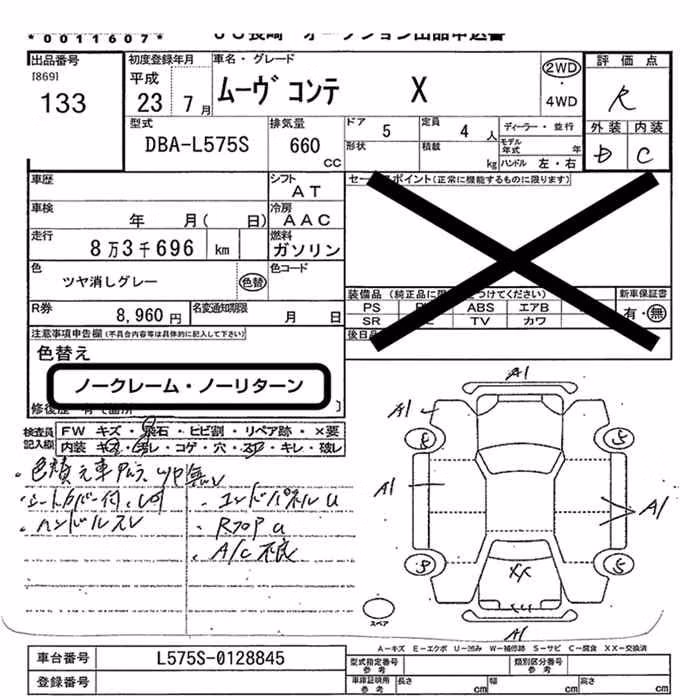 *0011607*
出品番号
[869]
133
初度登録年月
平成
23 7月
車名・グレード
ムーヴ コンテ X
2WD
・
4WD
評価点
R
外装 内装
D C
型式
DBA-L575S
排気量
660
CC
ドア 5
定員 4 人
ディーラー・並行
形状
積載 kg
モデル年式 年
ハンドル 左・右
車歴
シフト
AT
セールスポイント(正常に機能するものに限ります)
車検
年 月( 日)
冷房
AAC
走行
8万3千696 km
燃料
ガソリン
色
ツヤ消しグレー
色替
色コード
装備品
PS ABS エアB
SR TV カワ
新車保証書
有・無
R券
8,960円
名変通知期限
月 日
後日品
注意事項申告欄(不具合内容等は具体的に記入して下さい)
色替え
ノークレーム・ノーリターン
検査員記入欄
FW キズ・飛石・ヒビ割・リペア跡・×要
内装 キズ・汚レ・コゲ・穴・スレ・キレ・破レ
・色替え車
・ハンドルスレ
・エンドパネルU
・A/C不良
A1
A1
8
5
A1
A1
5
XX
スペア
A1
A-キズ E-エクボ U-凹み W-補修跡 S-サビ C-腐食 XX-交換済
車台番号
L575S-0128845
登録番号
型式指定番号
参考
類別区分番号
参考
車庫証明所
参考
長さ cm
幅 cm
高さ cm